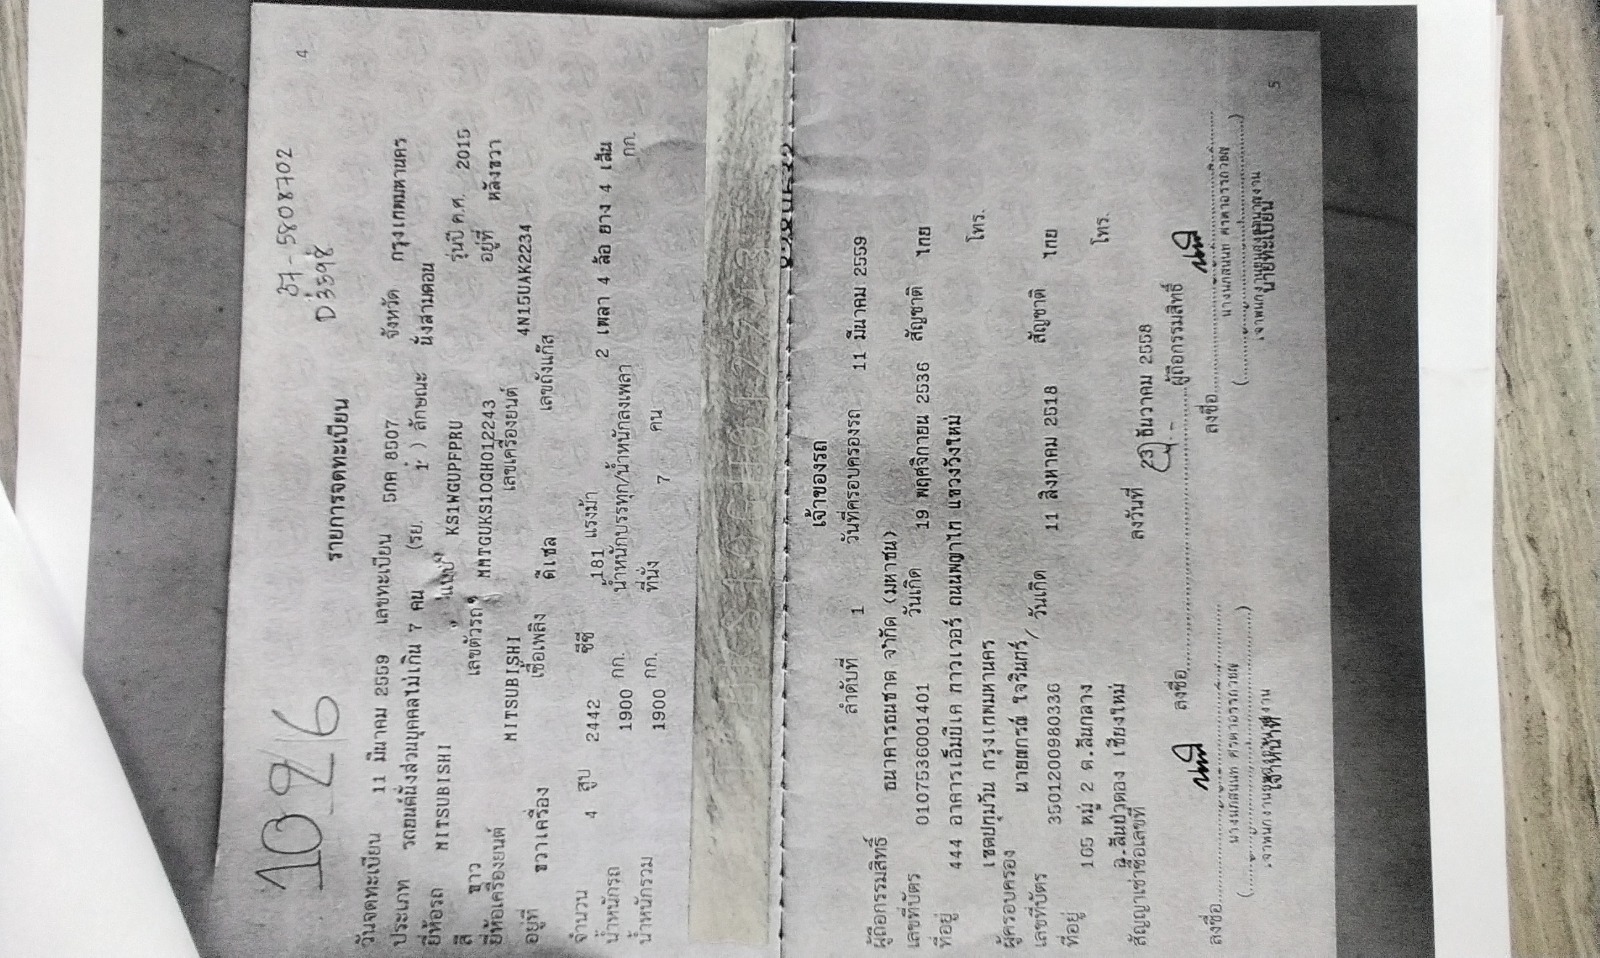 4
37-5808702
D3598
1026
รายการจดทะเบียน
วันจดทะเบียน 11 มีนาคม 2559 เลขทะเบียน 5กค 8507 จังหวัด กรุงเทพมหานคร
ประเภท รถยนต์นั่งส่วนบุคคลไม่เกิน 7 คน (รย. 1 ) ลักษณะ นั่งสามตอน
ยี่ห้อรถ MITSUBISHI แบบ KS1WGUPFPRU รุ่นปี ค.ศ. 2015
สี ขาว เลขตัวรถ MMTGUKS10GH012243 อยู่ที่ หลังขวา
ยี่ห้อเครื่องยนต์ MITSUBISHI เลขเครื่องยนต์ 4N15UAK2234
อยู่ที่ ขวาเครื่อง เชื้อเพลิง ดีเซล เลขถังแก๊ส
จำนวน 4 สูบ 2442 ซีซี 181 แรงม้า 2 เพลา 4 ล้อ ยาง 4 เส้น
น้ำหนักรถ 1900 กก. น้ำหนักบรรทุก/น้ำหนักลงเพลา กก.
น้ำหนักรวม 1900 กก. ที่นั่ง 7 คน
เจ้าของรถ
ลำดับที่ 1 วันที่ครอบครองรถ 11 มีนาคม 2559
ผู้ถือกรรมสิทธิ์ ธนาคารธนชาต จำกัด (มหาชน)
เลขที่บัตร 0107536001401 วันเกิด 19 พฤศจิกายน 2536 สัญชาติ ไทย
ที่อยู่ 444 อาคารเอ็มบีเค ทาวเวอร์ ถนนพญาไท แขวงวังใหม่
เขตปทุมวัน กรุงเทพมหานคร โทร.
ผู้ครอบครอง ใจวินทร์
เลขที่บัตร 3501200980336 วันเกิด 11 สิงหาคม 2518 สัญชาติ ไทย
ที่อยู่ 105 หมู่ 2 ต.สันกลาง
อ.สันป่าตอง เชียงใหม่ โทร.
สัญญาเช่าซื้อเลขที่ ลงวันที่ 23 ธันวาคม 2558
ลงชื่อ ผู้ถือกรรมสิทธิ์
ลงชื่อ ลงชื่อ
เจ้าหน้าที่ นายทะเบียน
5